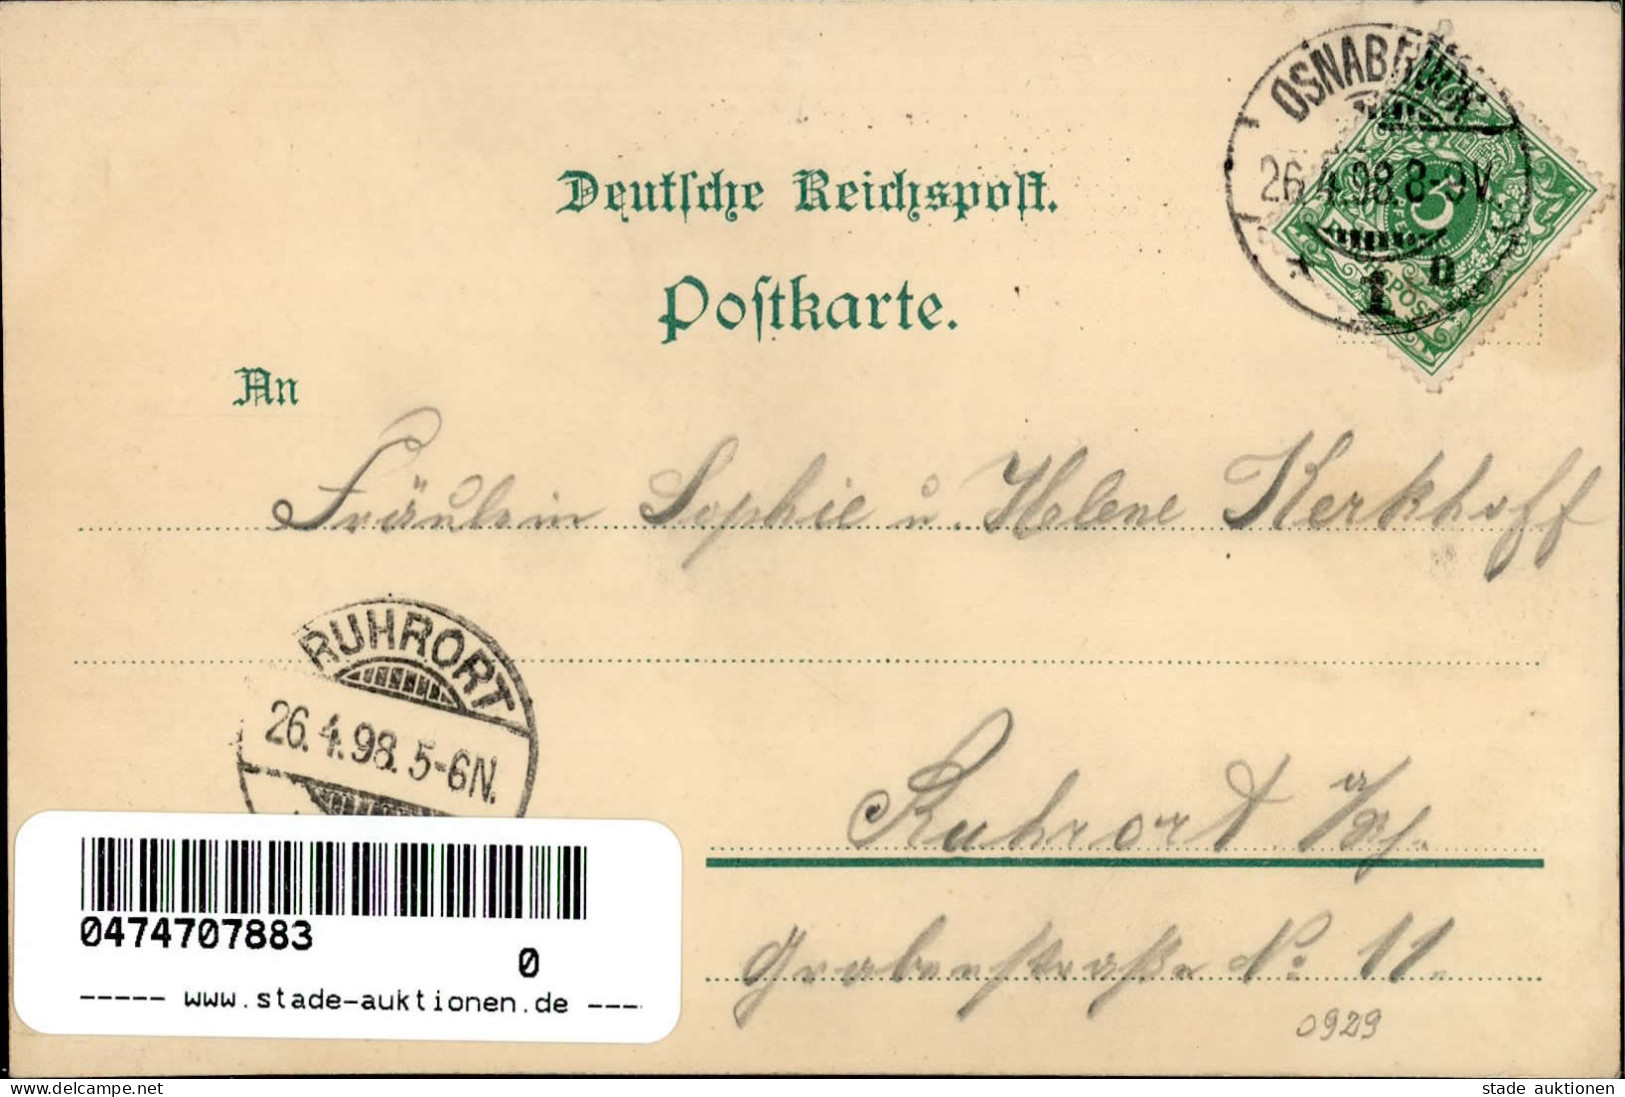 OSNABRÜCK
26.4.98.8-9V.
* 1 n
5
PFENNIG
REICHSPOST
Deutsche Reichspost.
Postkarte.
An
Fräulein Sophie u. Helene Kerkhoff
RUHRORT
26.4.98.5-6N.
Ruhrort a/Rh.
Grabenstraße No. 11.
0929
0474707883
0
----- www.stade-auktionen.de ----
www.delcampe.net
stade auktionen